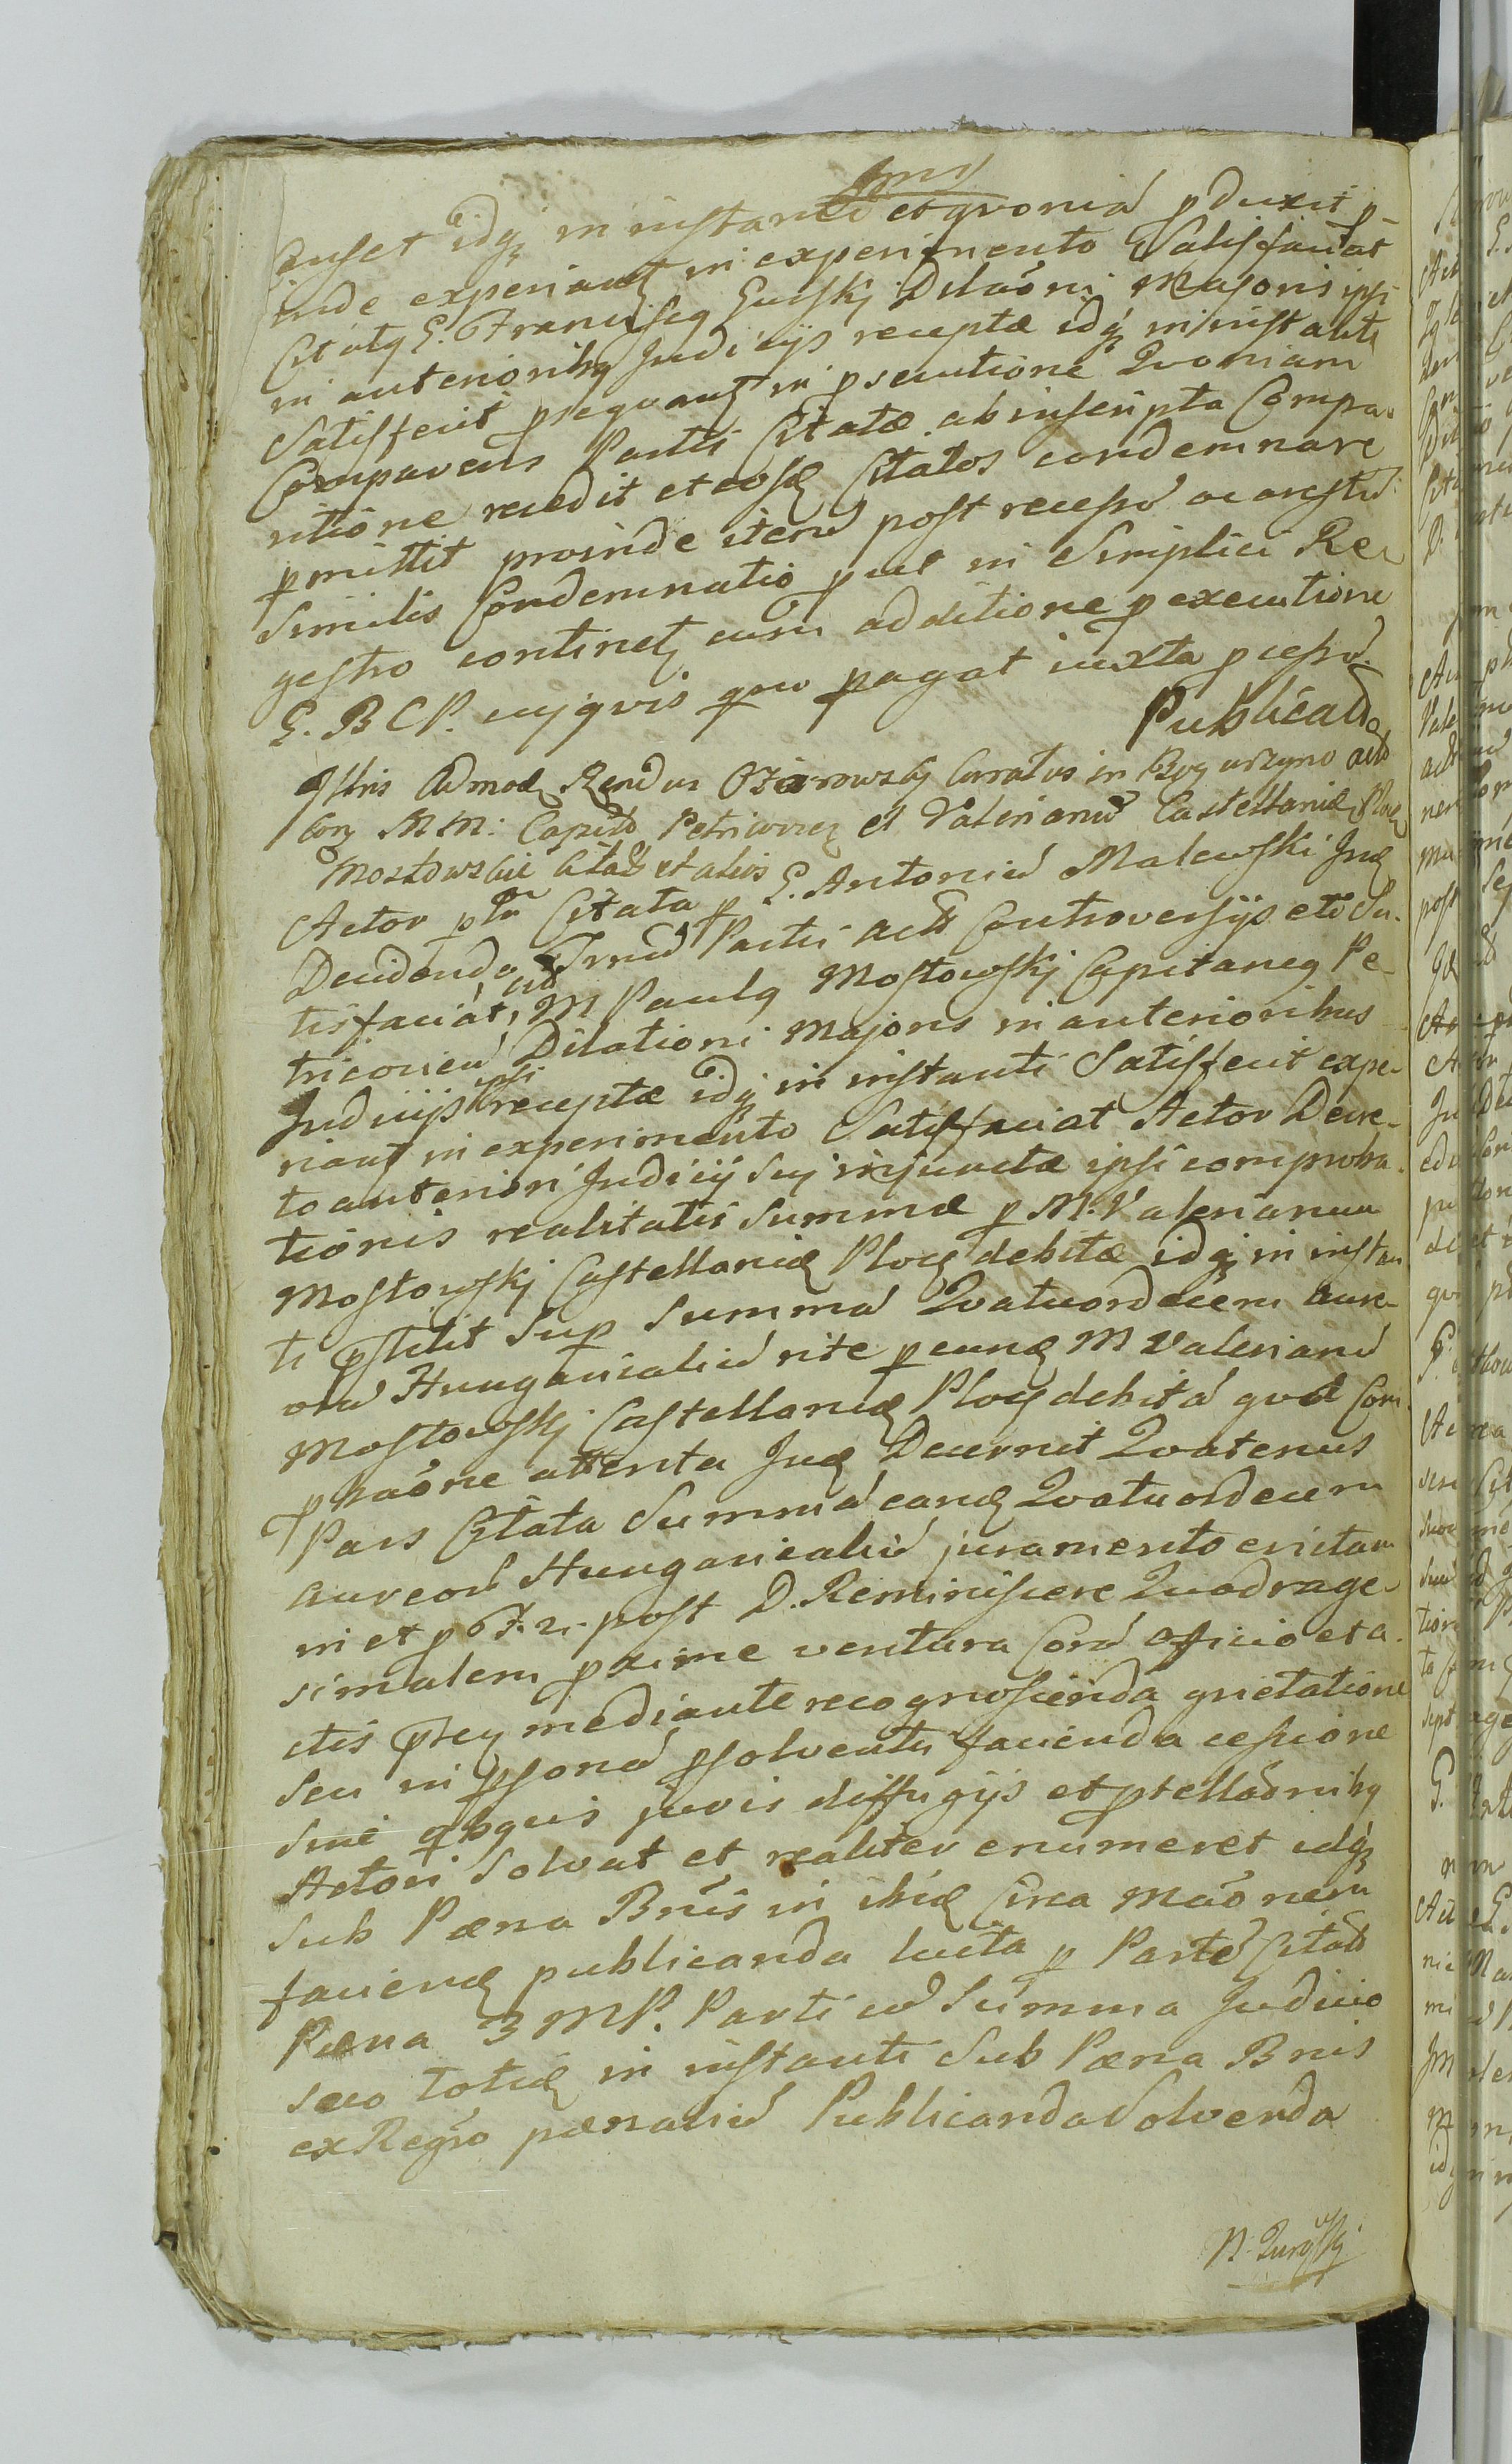 auset idq in instanti et qvoniá pduxit p-
inde experiantq in experimento Satisfaciat
Citatq G. Franciscq Gurskj Dilaõni Majoris ipsi
in anterioribq Judicijs receptæ idq in instanti
Satisfecit prosequantq in psecutione Qvoniam
Comparens Partis Citatæ ab inscripta Compa-
ritione recedit et eosdq Citatos condemnare
pmittit proinde iterú post recessú ac arestú
Similis Condemnatio put in Simplici Re-
gestro continetq cum additione p executione
G. B C P. cujqvis pagat iuxta pcessú
Publicata
Admodq Rendus Ożarowskj Curatus in Bogurzyno
Corq M M: Capitó Petricovienq et Valerianú Castellanidq Plocq
Mostowskie Citatós et alios
Actor ptm Citata p G. Antoniú Malewski Judq
Decidenda Trnú Partis actis Controversijs eió Sa-
tisfaciat, M Paulq Mostowskj Capitaneq Pe-
tricovien Dilationi Majoris in anterioribus
Judicijs ipsi receptæ idq in instanti Satisfecit expe-
riantq in experimento Satisfaciat Actor Decre-
to anteriori Judicij Sui injunctæ ipsi comproba-
tionis realitatis Summæ p M. Valerianum
Mostowskj Castellanidq Plocq debitæ idq in instan-
ti pstitit Sup Summá Qvatuordecem aure-
orú Hungaricaliú rite p eundq M Valerianú
Mostowskj Castellanidq Plocq debitá qvá Com-
pbaõne attenta Judq Decernit Qvatenus
Pars Citata Summá eandq Qvatuordecem
aureorú Hungaricaliú juramento evictam
in et p F. 2. post D. Reminiscere Quadrage-
simalem pxime ventura Corá officio et a-
ctis pntq mediante recognoscenda qvietatione
seu in psoná psolventis facienda cessione
sine qbqvis juris diffugijs et ptellaõnibq
Actori Solvat et realiter enumeret idq
sub Pæna Bnis in ibidq Circa Maõnem
faciendq publicanda lucta p Parté Citatá
Pæna 3 MP. Parti cú Summa Judicio
seco totidq in instanti Sub Pæna Bnis
ex Regro pænaliú Publicanda Solvenda